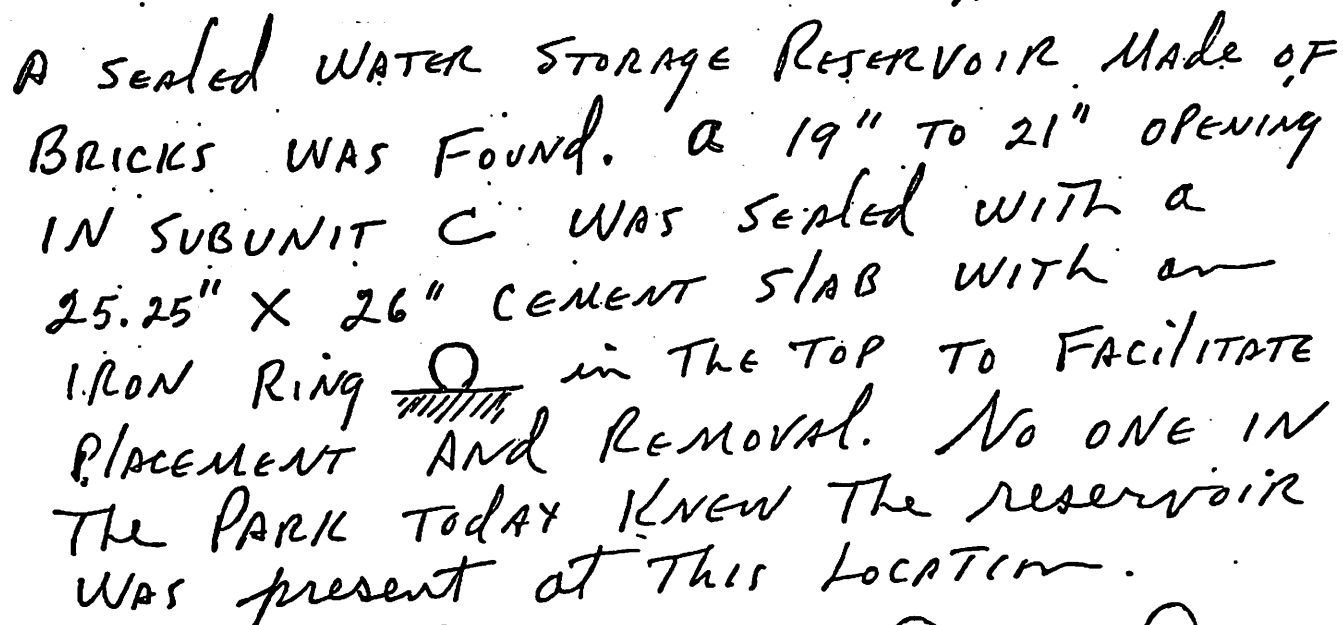 A sealed WATER STORAGE RESERVOIR Made OF
BRICKS WAS FOUNd. a 19" TO 21" OPENING
IN SUBUNIT C WAS SEALED WITH a
25.25" X 26" CEMENT SlAB WITh an
IRON RiNg in ThE TOP TO FACilITATE
PlACEMENT ANd REMOVAl. No ONE IN
The PARK TOdAY KNEW The reservoiR
WAS present at This LOCATION.